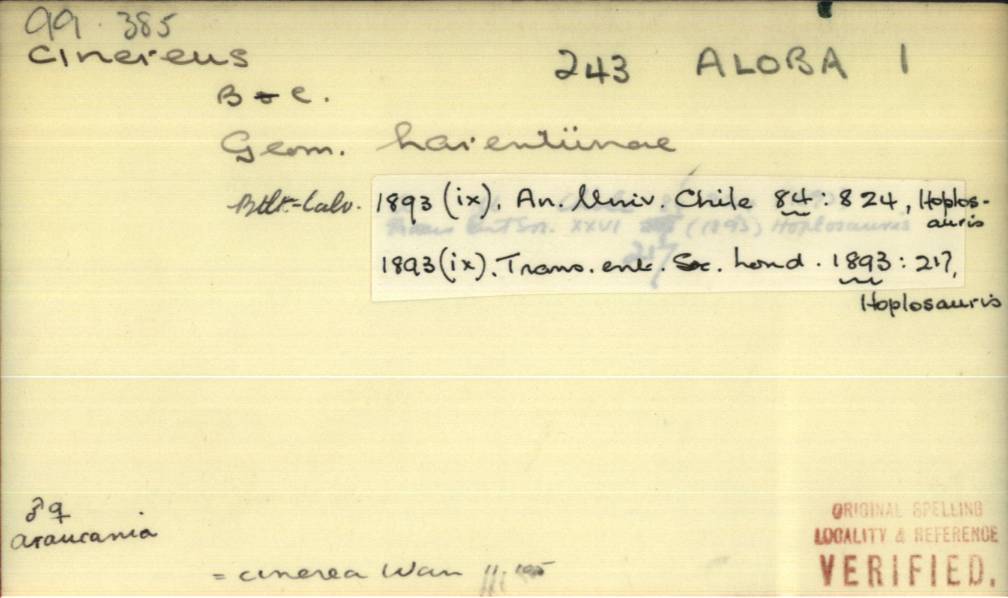 99.385
cinereus
243 ALOBA 1
B & C.
Geom. Larentiinae
Btlr-Calv. 1893 (ix). An. Univ. Chile 84 : 824, Hoplos-
auris
Trans Ent Soc. XXVI (1893) Hoplosauris
217
1893 (ix). Trans. ent. Soc. Lond. 1893 : 217,
Hoplosauris
♂♀
Araucania
= cinerea Warr
ORIGINAL SPELLING
LOCALITY & REFERENCE
VERIFIED.